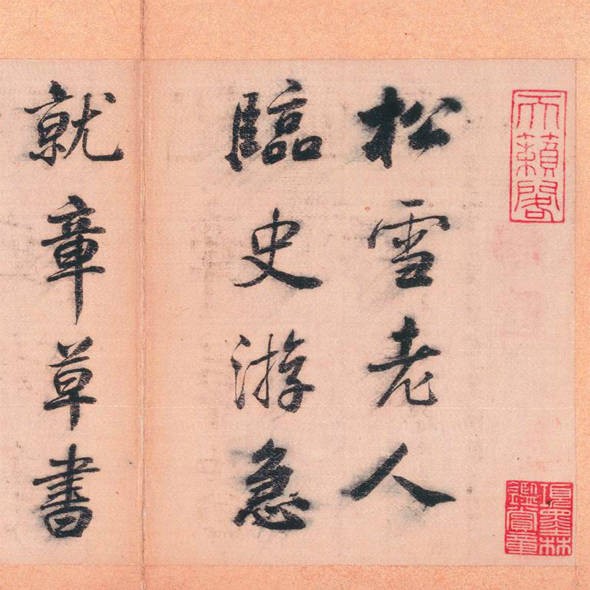 天籟閣
項墨林鑑賞章
松雪老人
臨史游急
就章草書